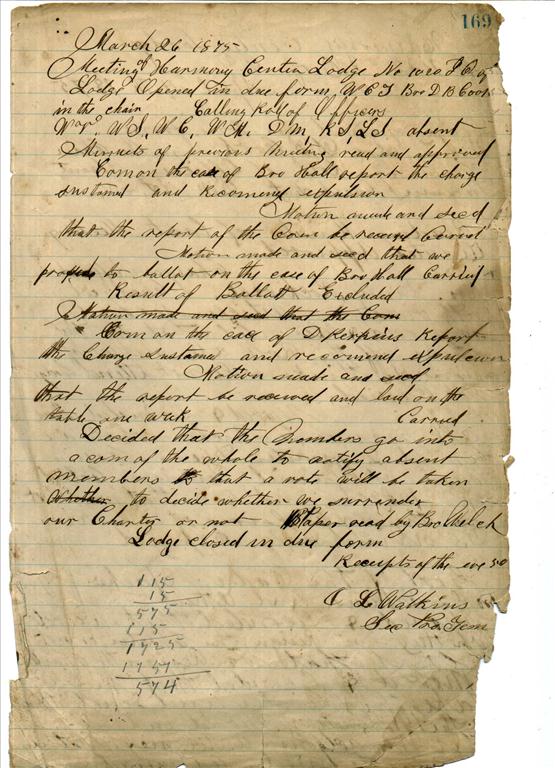 169
March 26 1875
Meeting of Harmony Center Lodge No 1020 I O of
Lodge Opened in due form, W C T Bro D B Cook
in the chair Calling Roll of Officers
W S, W C, W M, D M, R S, L S absent
Minuets of previous Meeting read and approved
Com on the case of Bro Hall report the charge
sustained and Recomend expulsion
Motion made and secd
that the report of the Com be received Carried
Motion made and secd that we
proceed to ballot on the case of Bro Hall Carried
Result of Ballott Excluded
Motion made and secd that the Com
Com on the case of D Report
the Charge Sustained and recomend expulsion
Motion made and secd
that the report be received and laid on the
table one week Carried
Decided that the Members go into
a com of the whole to notify absent
members to that a vote will be taken
whether to decide whether we surrender
our Charter or not Paper read by Bro Welch
Lodge closed in due form
Receipts of the eve 50
L Watkins
Sec Pro. Tem
115
15
575
115
1725
1157
574